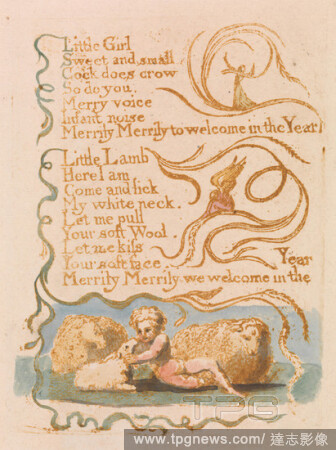 Little Girl
Sweet and small
Cock does crow
So do you.
Merry voice
Infant noise
Merrily Merrily to welcome in the Year
Little Lamb
Here I am
Come and lick
My white neck.
Let me pull
Your soft Wool.
Let me kiss
Your soft face.
Merrily Merrily we welcome in the Year
TPG
www.tpgnews.com/ 達志影像